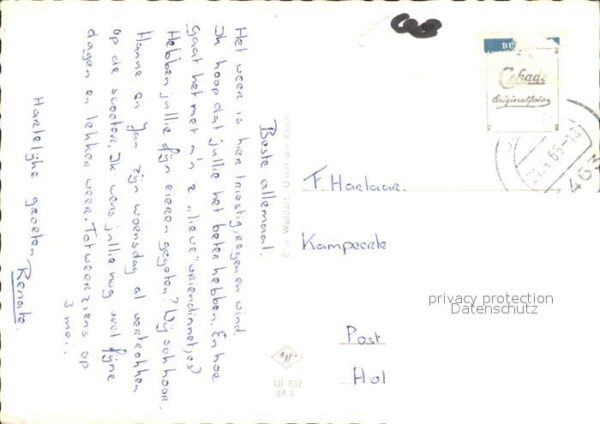 Beste allemaal.
Het weer is hier triestig, regen en wind.
Ik hoop dat jullie het beter hebben. En hoe
gaat het met m'n 2 "lieve" vriendinnetjes?
Hebben jullie fijn eieren gegeten? Wij ook hoor.
Hanne en Jan zijn woensdag al vertrokken
op de scooter. Ik wens jullie nog veel fijne
dagen en lekker weer. Tot weerziens op
3 mei.
Hartelijke groeten
Renate.
F. Harlaar.
Kampeerte
Post
Hol
Cekade
Originalfoto
privacy protection
Datenschutz
UI 632